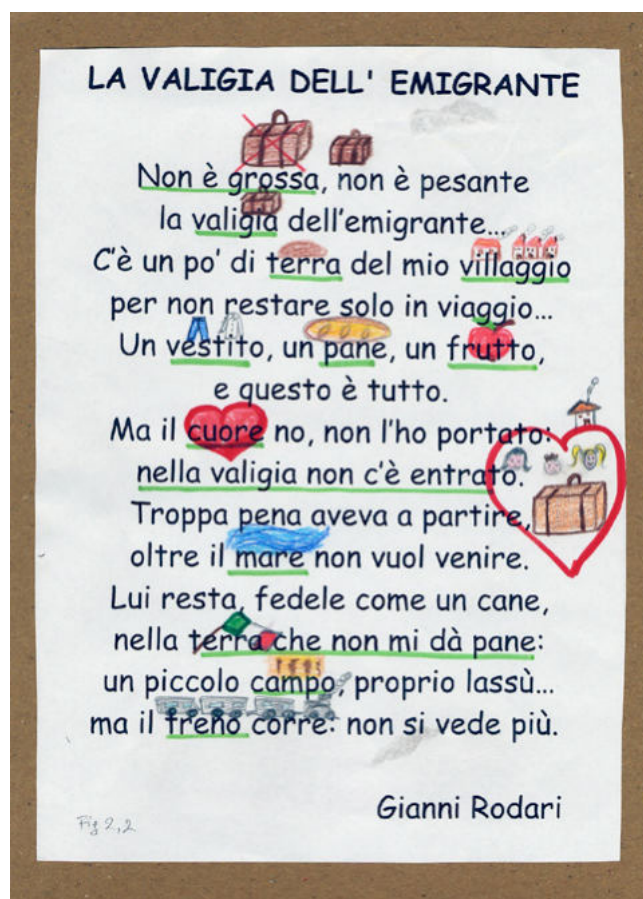 LA VALIGIA DELL' EMIGRANTE
Non è grossa, non è pesante
la valigia dell'emigrante...
C'è un po' di terra del mio villaggio
per non restare solo in viaggio...
Un vestito, un pane, un frutto,
e questo è tutto.
Ma il cuore no, non l'ho portato:
nella valigia non c'è entrato.
Troppa pena aveva a partire,
oltre il mare non vuol venire.
Lui resta, fedele come un cane,
nella terra che non mi dà pane:
un piccolo campo, proprio lassù...
ma il treno corre: non si vede più.
Gianni Rodari
Fig 2,2